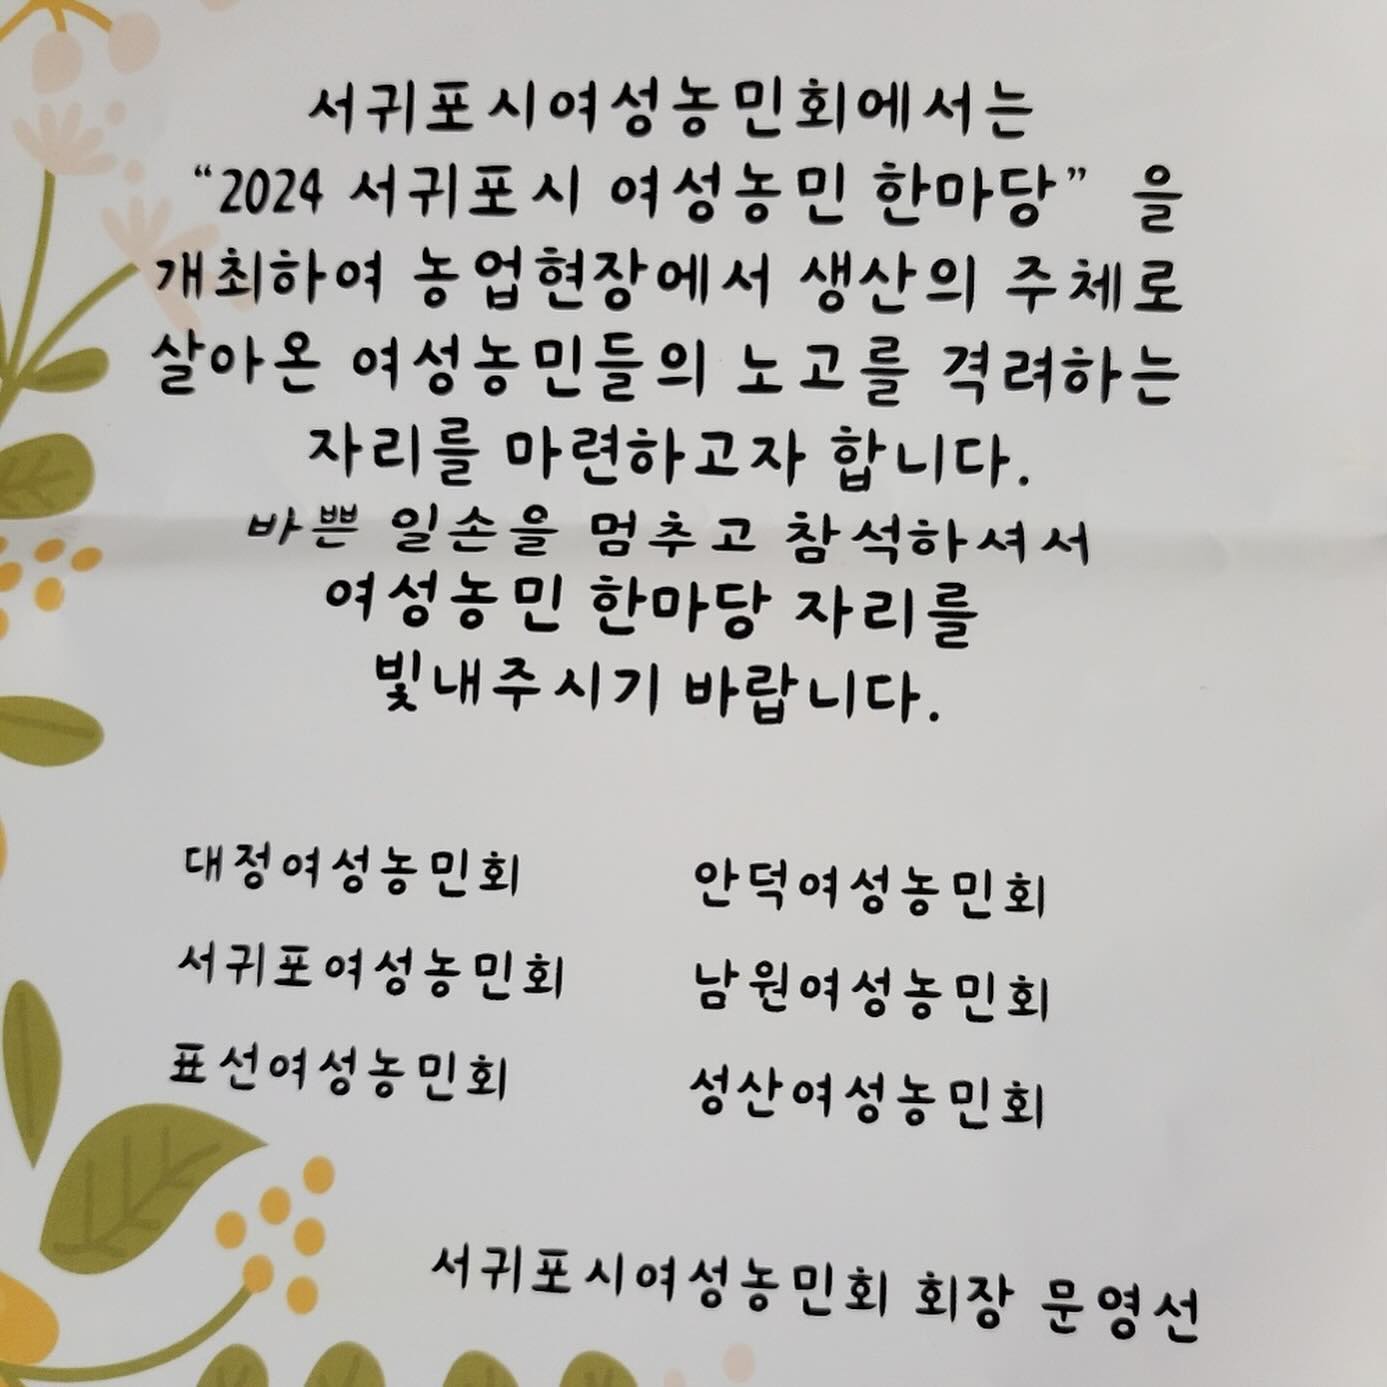 서귀포시여성농민회에서는
“2024 서귀포시 여성농민 한마당” 을
개최하여 농업현장에서 생산의 주체로
살아온 여성농민들의 노고를 격려하는
자리를 마련하고자 합니다.
바쁜 일손을 멈추고 참석하셔서
여성농민 한마당 자리를
빛내주시기 바랍니다.
대정여성농민회 안덕여성농민회
서귀포여성농민회 남원여성농민회
표선여성농민회 성산여성농민회
서귀포시여성농민회 회장 문영선